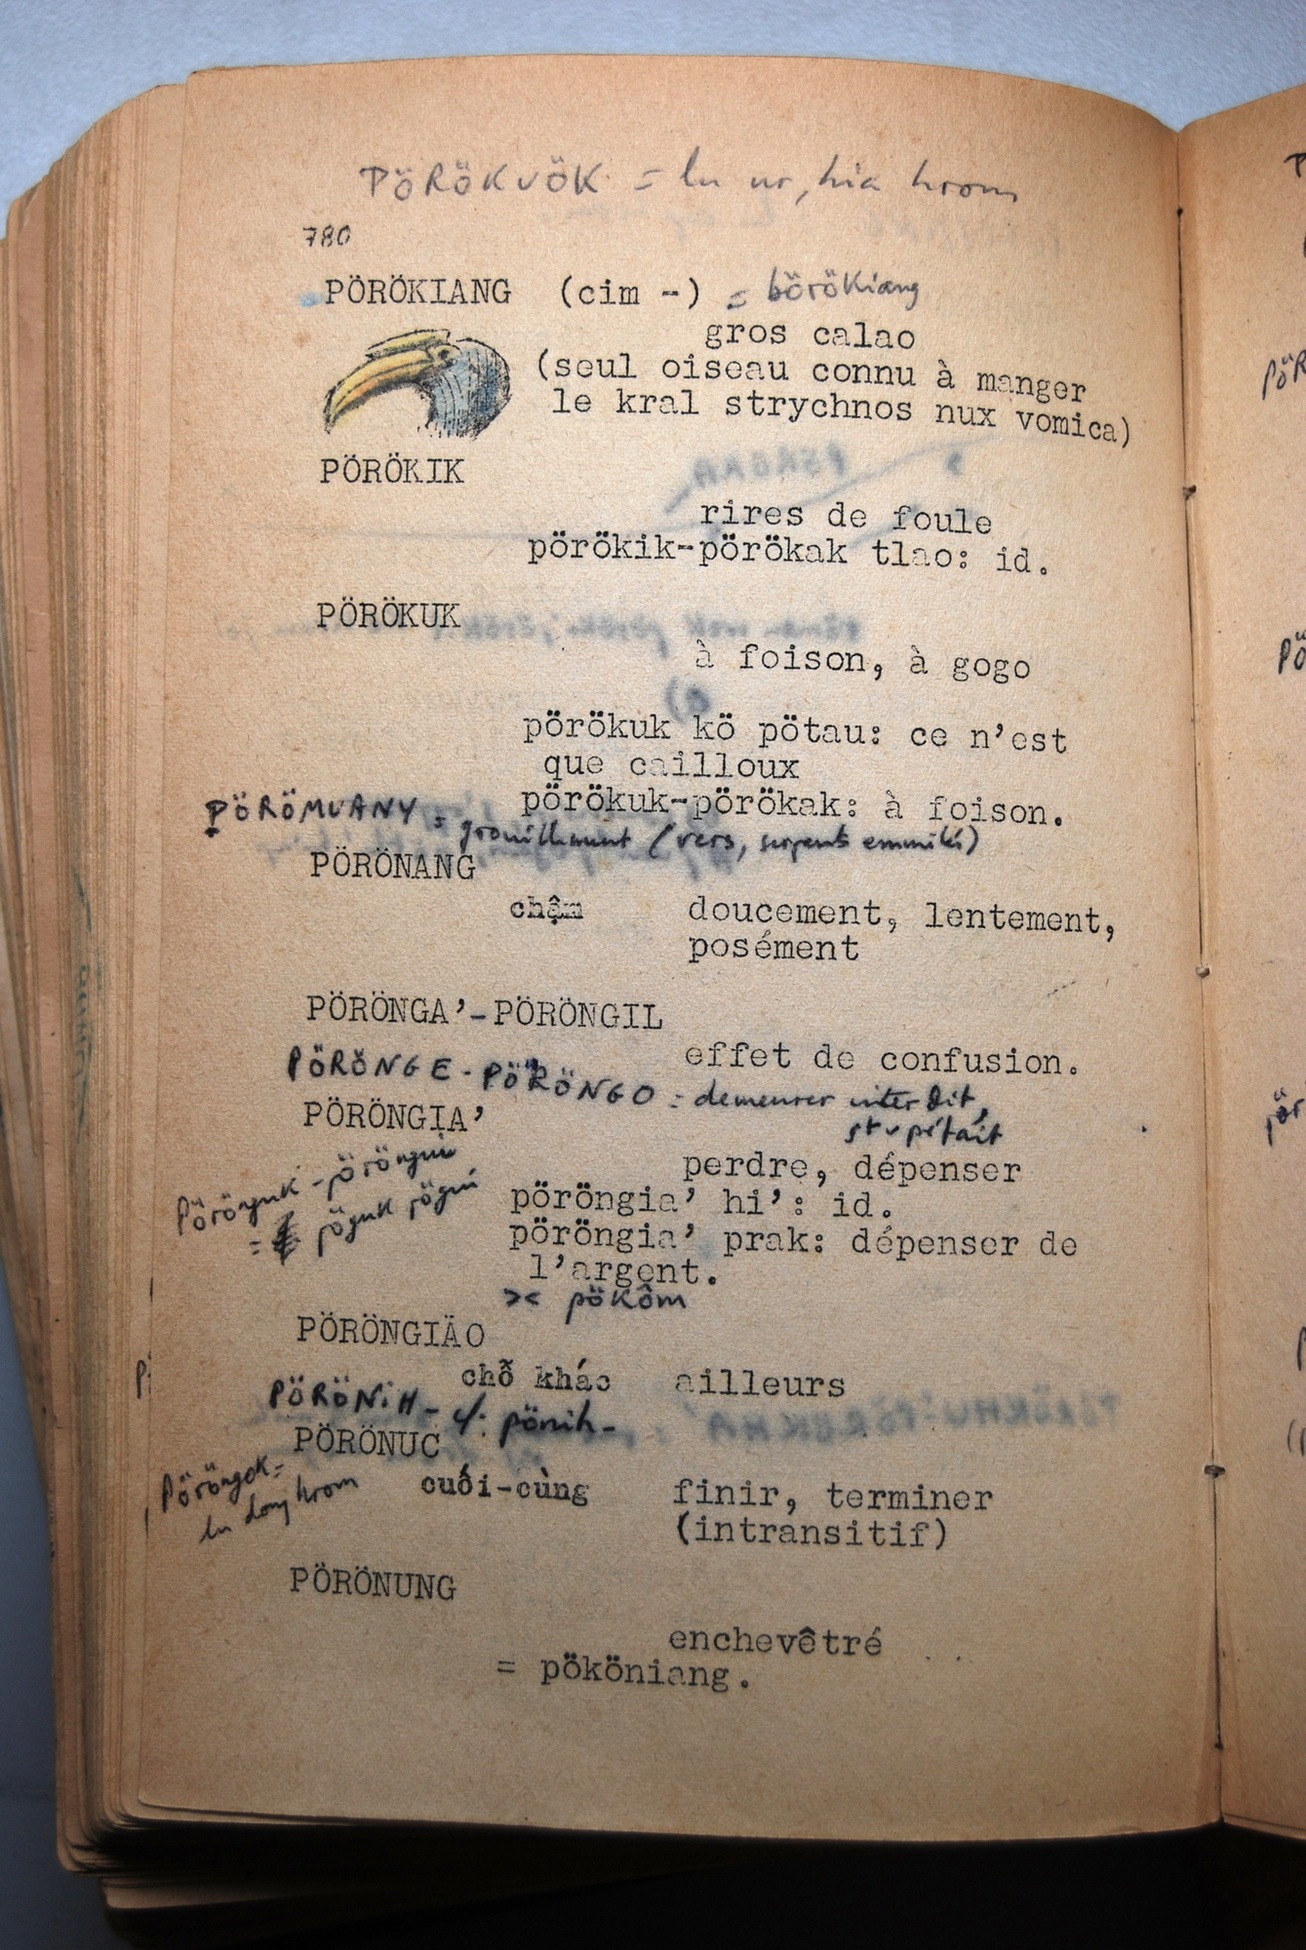 PÖRÖKVÖK = lu ur, hia hrom
780
PÖRÖKIANG (cim -) = börökiang
gros calao
(seul oiseau connu à manger
le kral strychnos nux vomica)
PÖRÖKIK
rires de foule
pörökik-pörökak tlao: id.
PÖRÖKUK
à foison, à gogo
pörökuk kö pötau: ce n'est
que cailloux
pörökuk-pörökak: à foison.
PÖRÖMUANY = grouillement (vers, serpents emmêlés)
PÖRÖNANG
chậm doucement, lentement,
posément
PÖRÖNGA'-PÖRÖNGIL
effet de confusion.
PÖRÖNGE-PÖRÖNGO = demeurer interdit,
stupéfait
PÖRÖNGIA'
perdre, dépenser
pöröngia' hi': id.
pöröngia' prak: dépenser de
l'argent.
>< pökôm
PÖRÖNGIĂO
chỗ khác ailleurs
PÖRÖNIH - cf. pönih-
PÖRÖNUC
Pöröngok =
lu dong hrom
cuối-cùng finir, terminer
(intransitif)
PÖRÖNUNG
enchevêtré
= pököniang.